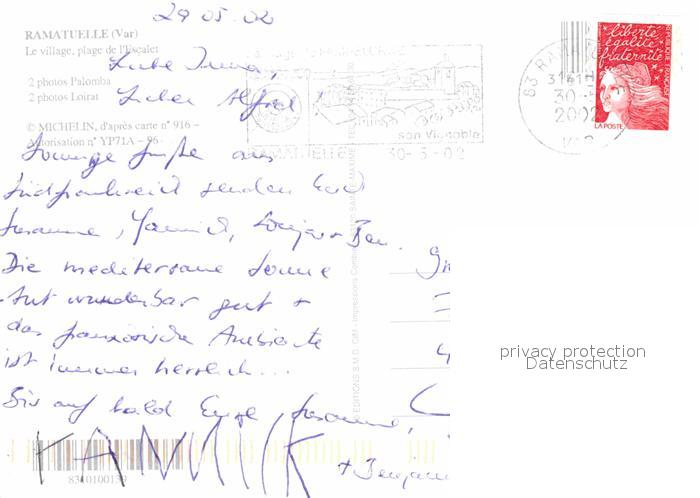 29.05.02
RAMATUELLE (Var)
Le village, plage de l'Escalet
Liebe Irma,
2 photos Palomba
2 photos Loirat
Lieber Alfred
© MICHELIN, d'après carte n° 916 -
autorisation n° YP71A - 96
Sonnige Grüße aus
Südfrankreich senden Euch
Susanne, Yannick, + Ben.
Die mediterrane Sonne
tut wunderbar gut +
das französische Ambiente
ist immer herrlich...
Bis auf bald Eure Susanne,
YANNICK
+ Benjamin
8310100139
son Vignoble
RAMATUELLE 30-5-02
83 RAMATUELLE
30-5
2002
VAR
liberté
égalité
fraternité
REPUBLIQUE FRANÇAISE
LA POSTE
privacy protection
Datenschutz